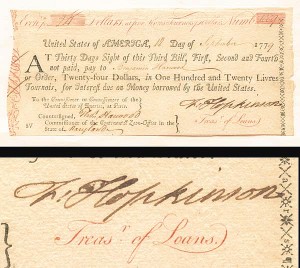 Dollars
Numb
United States of AMERICA, 18 Day of September 1779
AT Thirty Days Sight of this Third Bill, First, Second and Fourth
not paid, pay to
or Order, Twenty-four Dollars, in One Hundred and Twenty Livres
Tournois, for Interest due on Money borrowed by the United States.
To the Commissioner or Commissioners of the
United States of America, at Paris.
Countersigned,
Commissioner of the Continental Loan-Office in the
State of Maryland
F. Hopkinson
Treasr. of Loans.
F. Hopkinson
Treasr. of Loans.